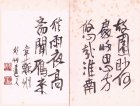 故園眇何
處歸思方
悠哉淮南
秋雨夜高
齋聞雁來
韋蘇州